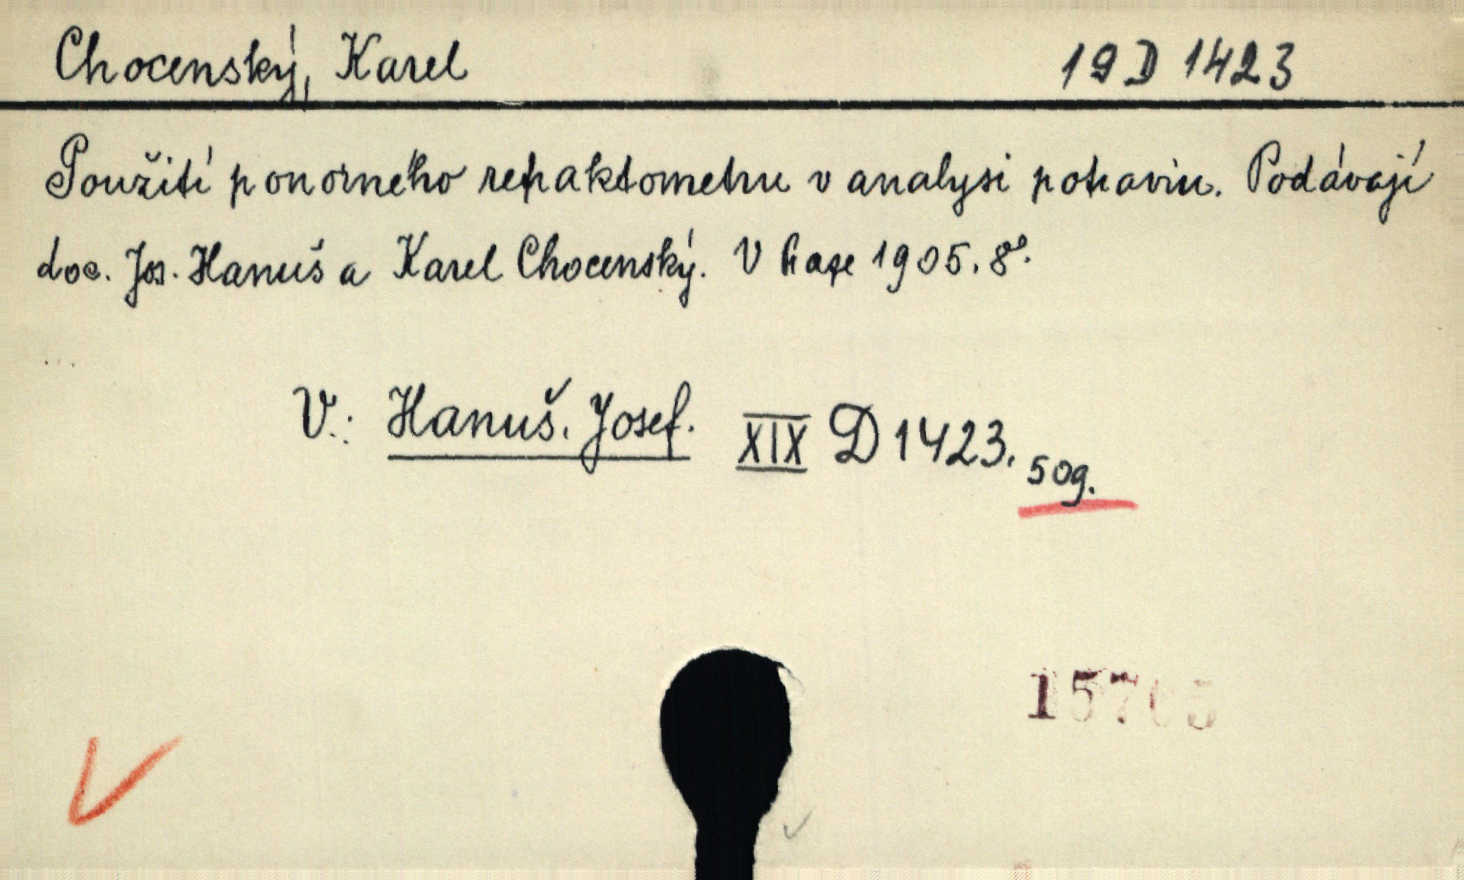 Chocenský, Karel 19 D 1423
Použití ponorného refraktometru v analysi potravin. Podávají
doc. Jos. Hanuš a Karel Chocenský. V Praze 1905. 8°.
V.: Hanuš, Josef. XIX D 1423. 50g.